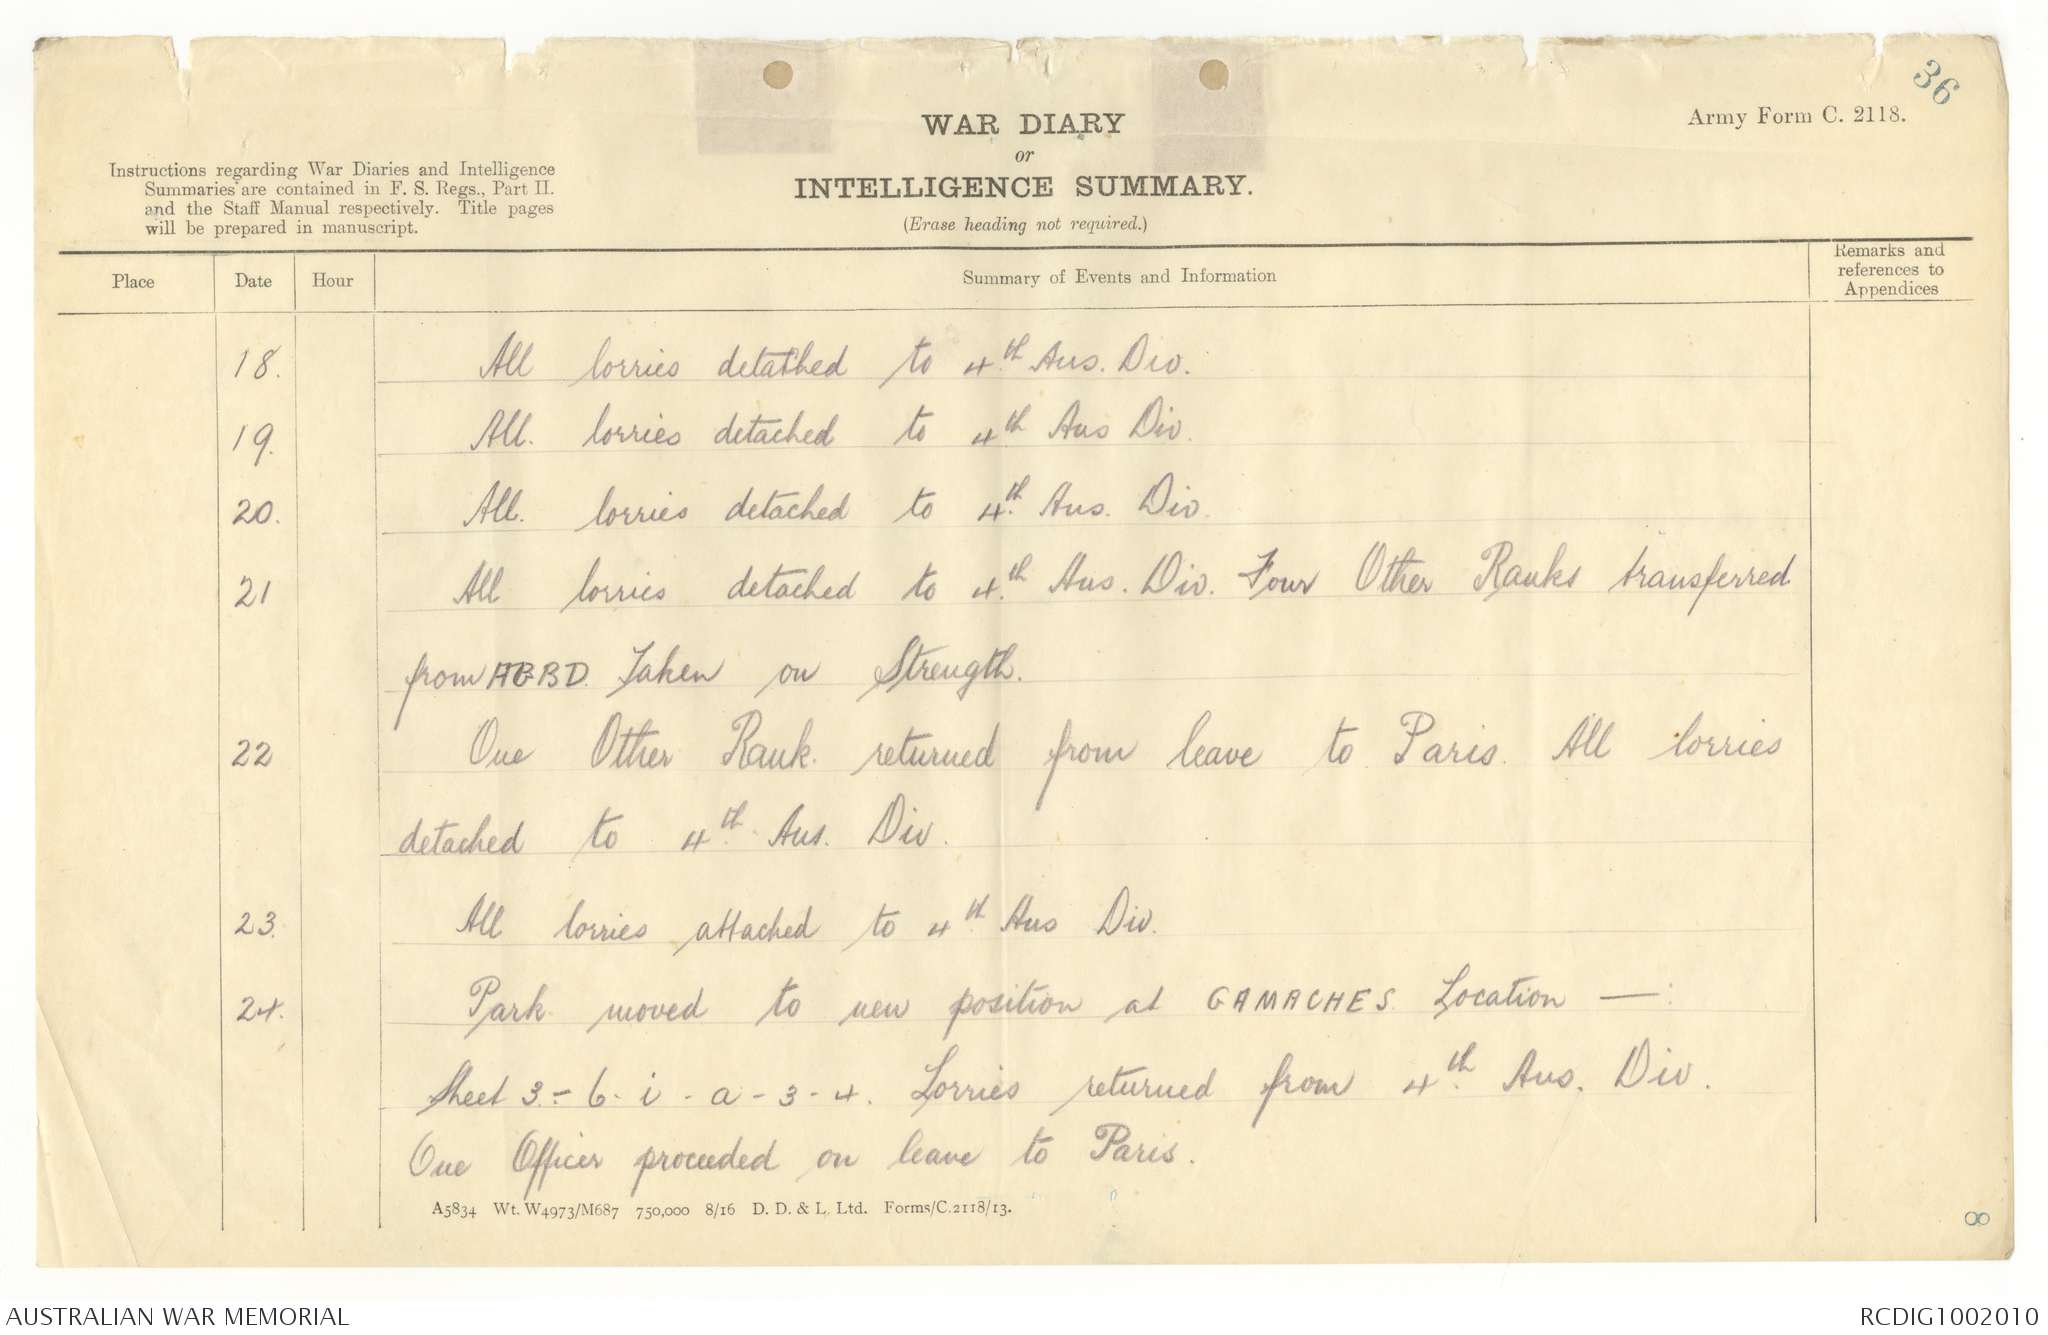 36
Army Form C. 2118.
WAR DIARY
or
INTELLIGENCE SUMMARY.
(Erase heading not required.)
Instructions regarding War Diaries and Intelligence
Summaries are contained in F. S. Regs., Part II.
and the Staff Manual respectively. Title pages
will be prepared in manuscript.
Place Date Hour Summary of Events and Information Remarks and references to Appendices
18. All lorries detached to 4th Aus. Div.
19. All. lorries detached to 4th Aus Div.
20. All. lorries detached to 4th. Aus. Div.
21 All lorries detached to 4th. Aus. Div. Four Other Ranks transferred
from Taken on Strength.
22 One Other Rank. returned from leave to Paris. All lorries
detached to 4th. Aus. Div.
23. All lorries attached to 4th. Aus Div.
24. Park moved to new position at GAMACHES. Location —:
Sheet 3 - 6 - i - a - 3 - 4. Lorries returned from 4th. Aus. Div.
One Officer proceeded on leave to Paris.
A5834 Wt. W4973/M687 750,000 8/16 D. D. & L. Ltd. Forms/C.2118/13.
8
AUSTRALIAN WAR MEMORIAL
RCDIG1002010